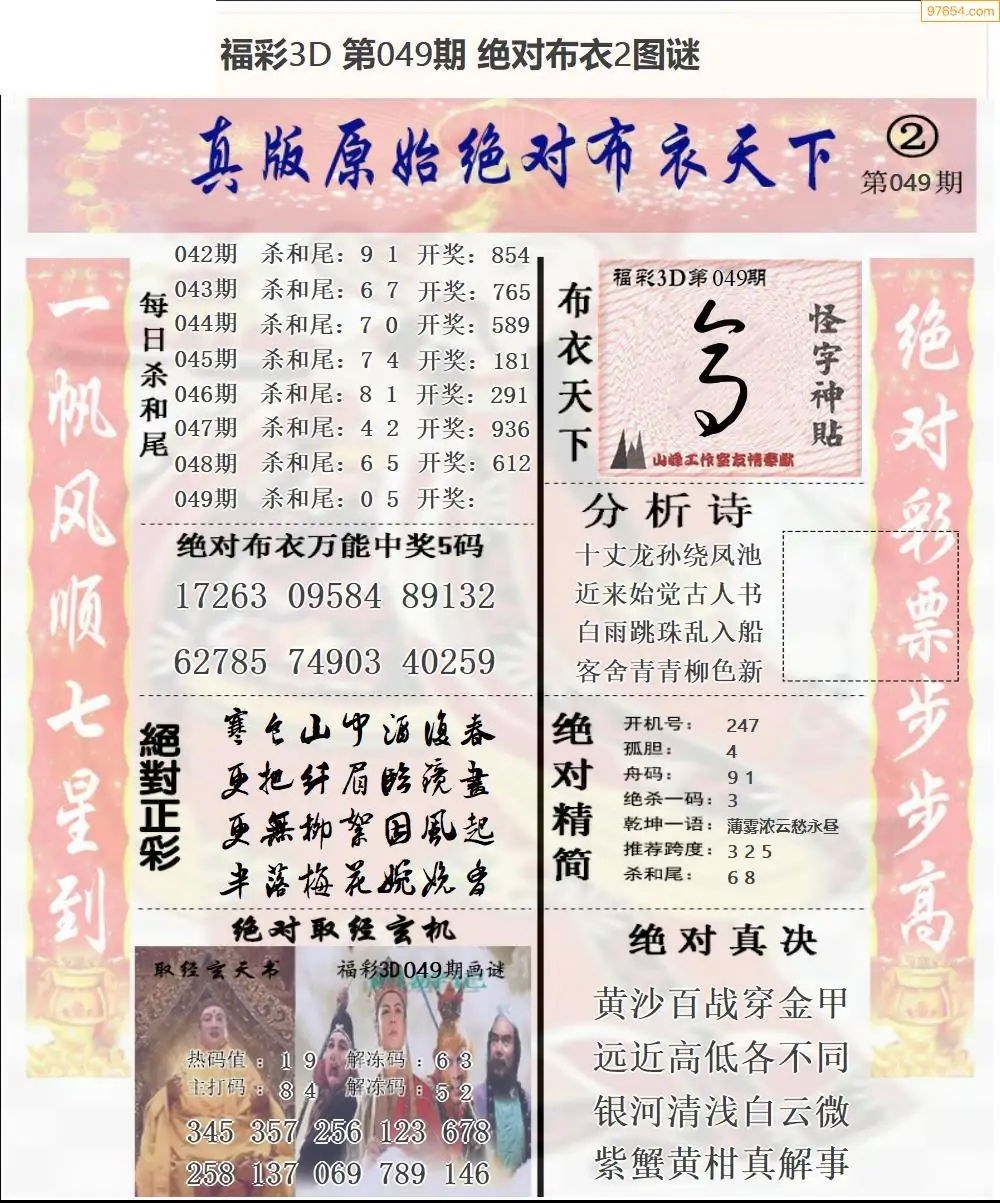 97654.com
福彩3D 第049期 绝对布衣2图谜
真版原始绝对布衣天下
②
第049期
一帆风顺七星到
每日杀和尾
042期 杀和尾：9 1 开奖：854
043期 杀和尾：6 7 开奖：765
044期 杀和尾：7 0 开奖：589
045期 杀和尾：7 4 开奖：181
046期 杀和尾：8 1 开奖：291
047期 杀和尾：4 2 开奖：936
048期 杀和尾：6 5 开奖：612
049期 杀和尾：0 5 开奖：
绝对布衣万能中奖5码
17263 09584 89132
62785 74903 40259
絕對正彩
寒仓山中酒復春
更把纤眉臨鏡畫
更無柳絮因風起
半落梅花婉娩香
绝对取经玄机
取经玄天书
福彩3D049期画谜
热码值：1 9 解冻码：6 3
主打码：8 4 解冻码：5 2
345 357 256 123 678
258 137 069 789 146
布衣天下
福彩3D第049期
怪字神貼
山峰工作室友情奉献
分析诗
十丈龙孙绕凤池
近来始觉古人书
白雨跳珠乱入船
客舍青青柳色新
绝对精简
开机号： 247
孤胆： 4
舟码： 9 1
绝杀一码：3
乾坤一语：薄雾浓云愁永昼
推荐跨度：3 2 5
杀和尾： 6 8
绝对真决
黄沙百战穿金甲
远近高低各不同
银河清浅白云微
紫蟹黄柑真解事
绝对彩票步步高